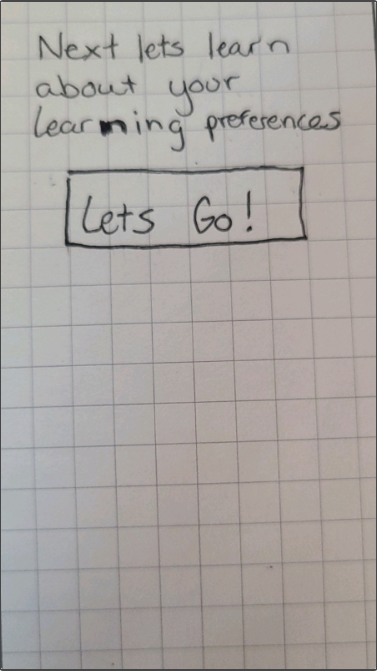 Next lets learn
about your
learning preferences
Lets Go!